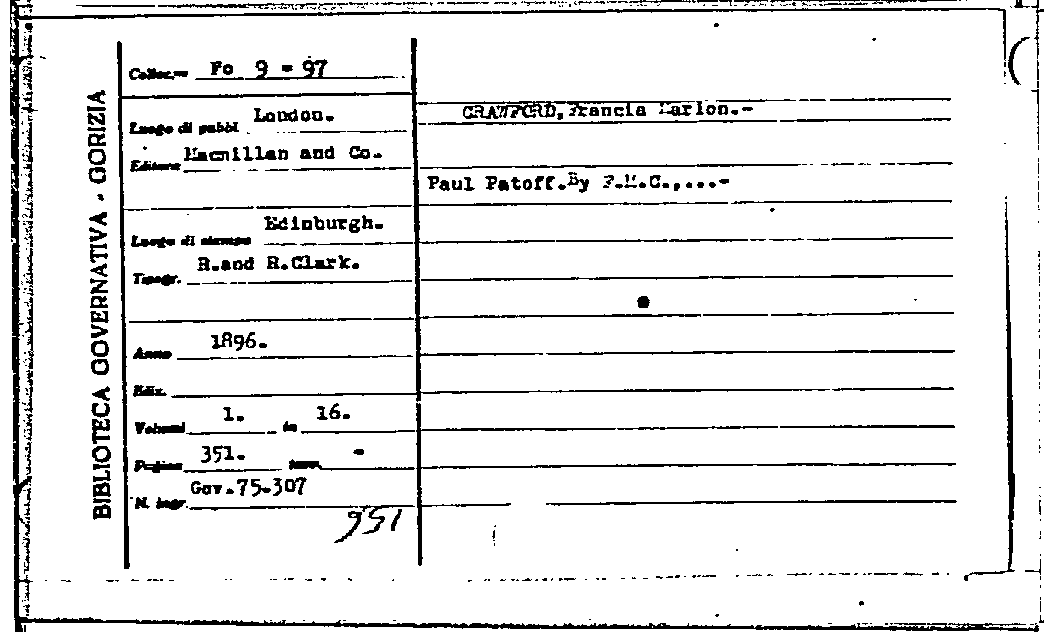 BIBLIOTECA GOVERNATIVA - GORIZIA
Colloc.— Fo 9 - 97
Luogo di pubbl. London.-
Editore Macmillan and Co.-
Luogo di stampa Edinburgh.-
Tipogr. R.and R.Clark.-
Anno 1896.-
Ediz.
Volumi 1.- in 16.-
Pagine 351.- tavv. -
N. ingr. Gov.75-307
951
CRAWFORD,Francis Marion.-
Paul Patoff.By F.M.C.,...-